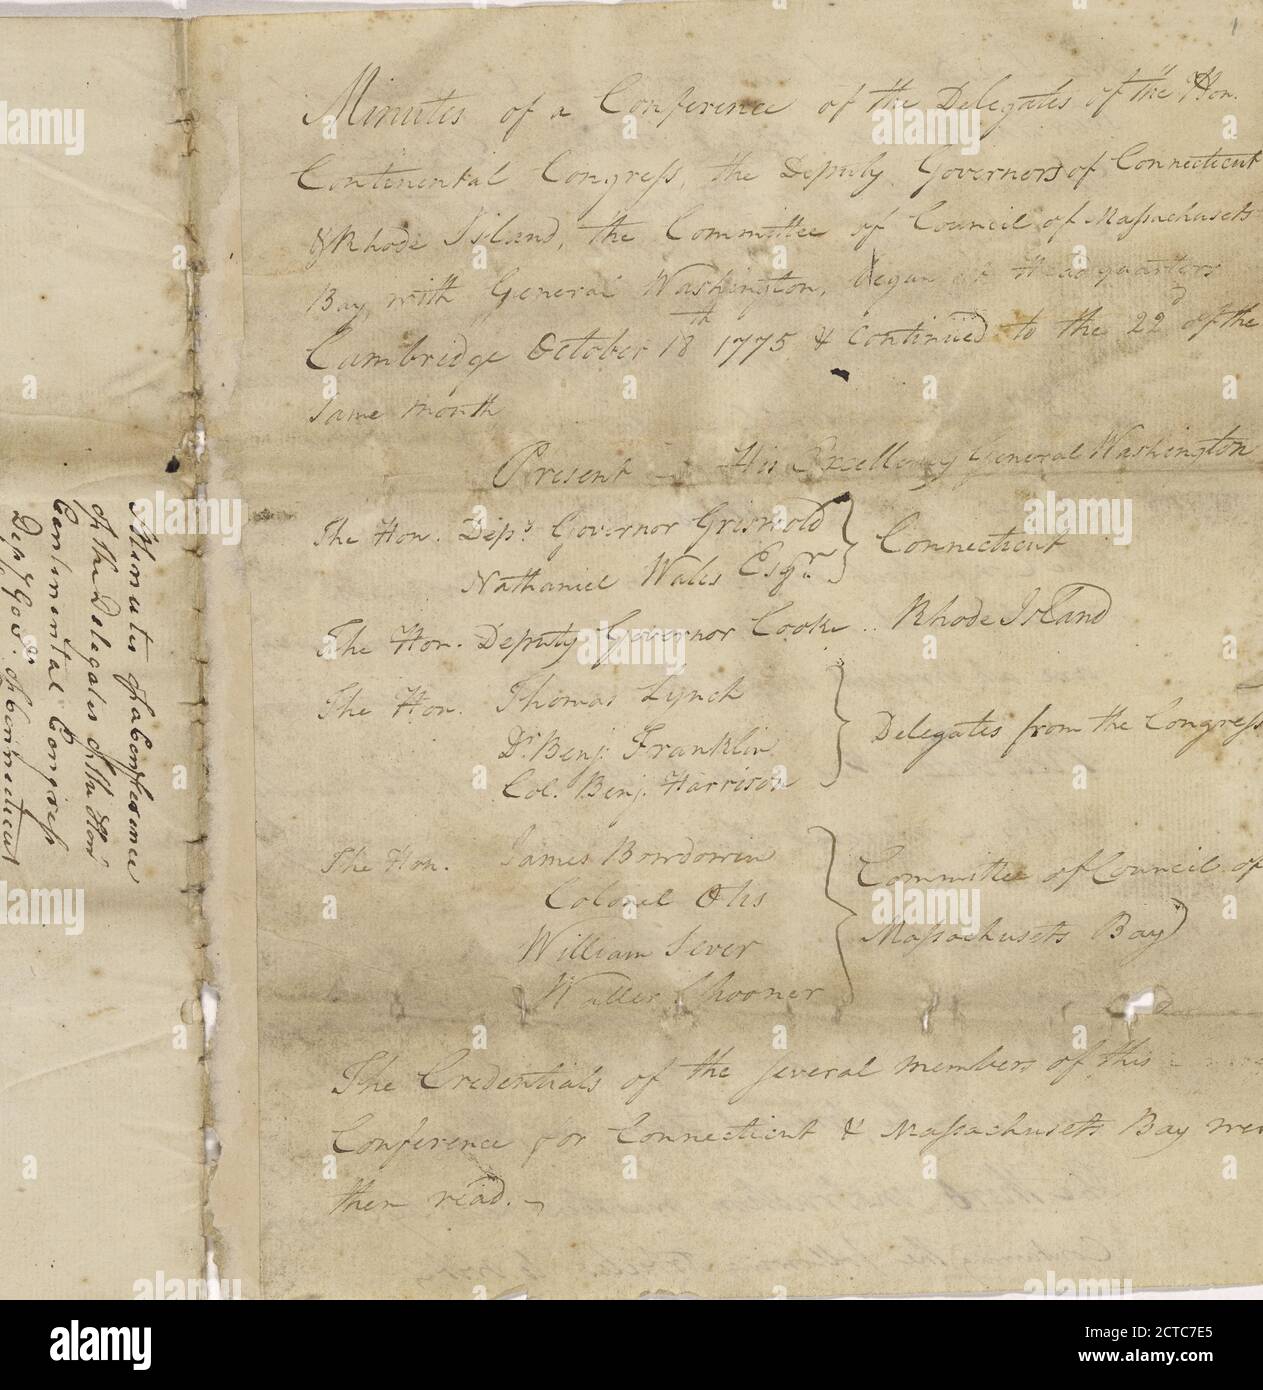 1
Minutes of a Conference of the Delegates of the Hon.
Continental Congress, the Deputy Governors of Connecticut
& Rhode Island, the Committee of Council of Massachusets
Bay, with General Washington, began at Head quarters
Cambridge October 18th 1775 & Continued to the 22d of the
same month
Present — His Excellency General Washington
The Hon. Depy. Governor Griswold
Nathaniel Wales Esqr. } Connecticut
The Hon. Deputy Governor Cooke .. Rhode Island
The Hon. Thomas Lynch
Dr. Benj. Franklin
Col. Benj. Harrison } Delegates from the Congress
The Hon. James Bowdowin
Colonel Otis
William Sever
Walter Spooner } Committee of Council of
Massachusets Bay
The Credentials of the several members of this
Conference for Connecticut & Massachusets Bay wer
then read. —
Minutes of a Conference
of the Delegates of the Hon
Continental Congress
Depy Govr. of Connecticut
alamy
Image ID: 2CTC7E5
www.alamy.com